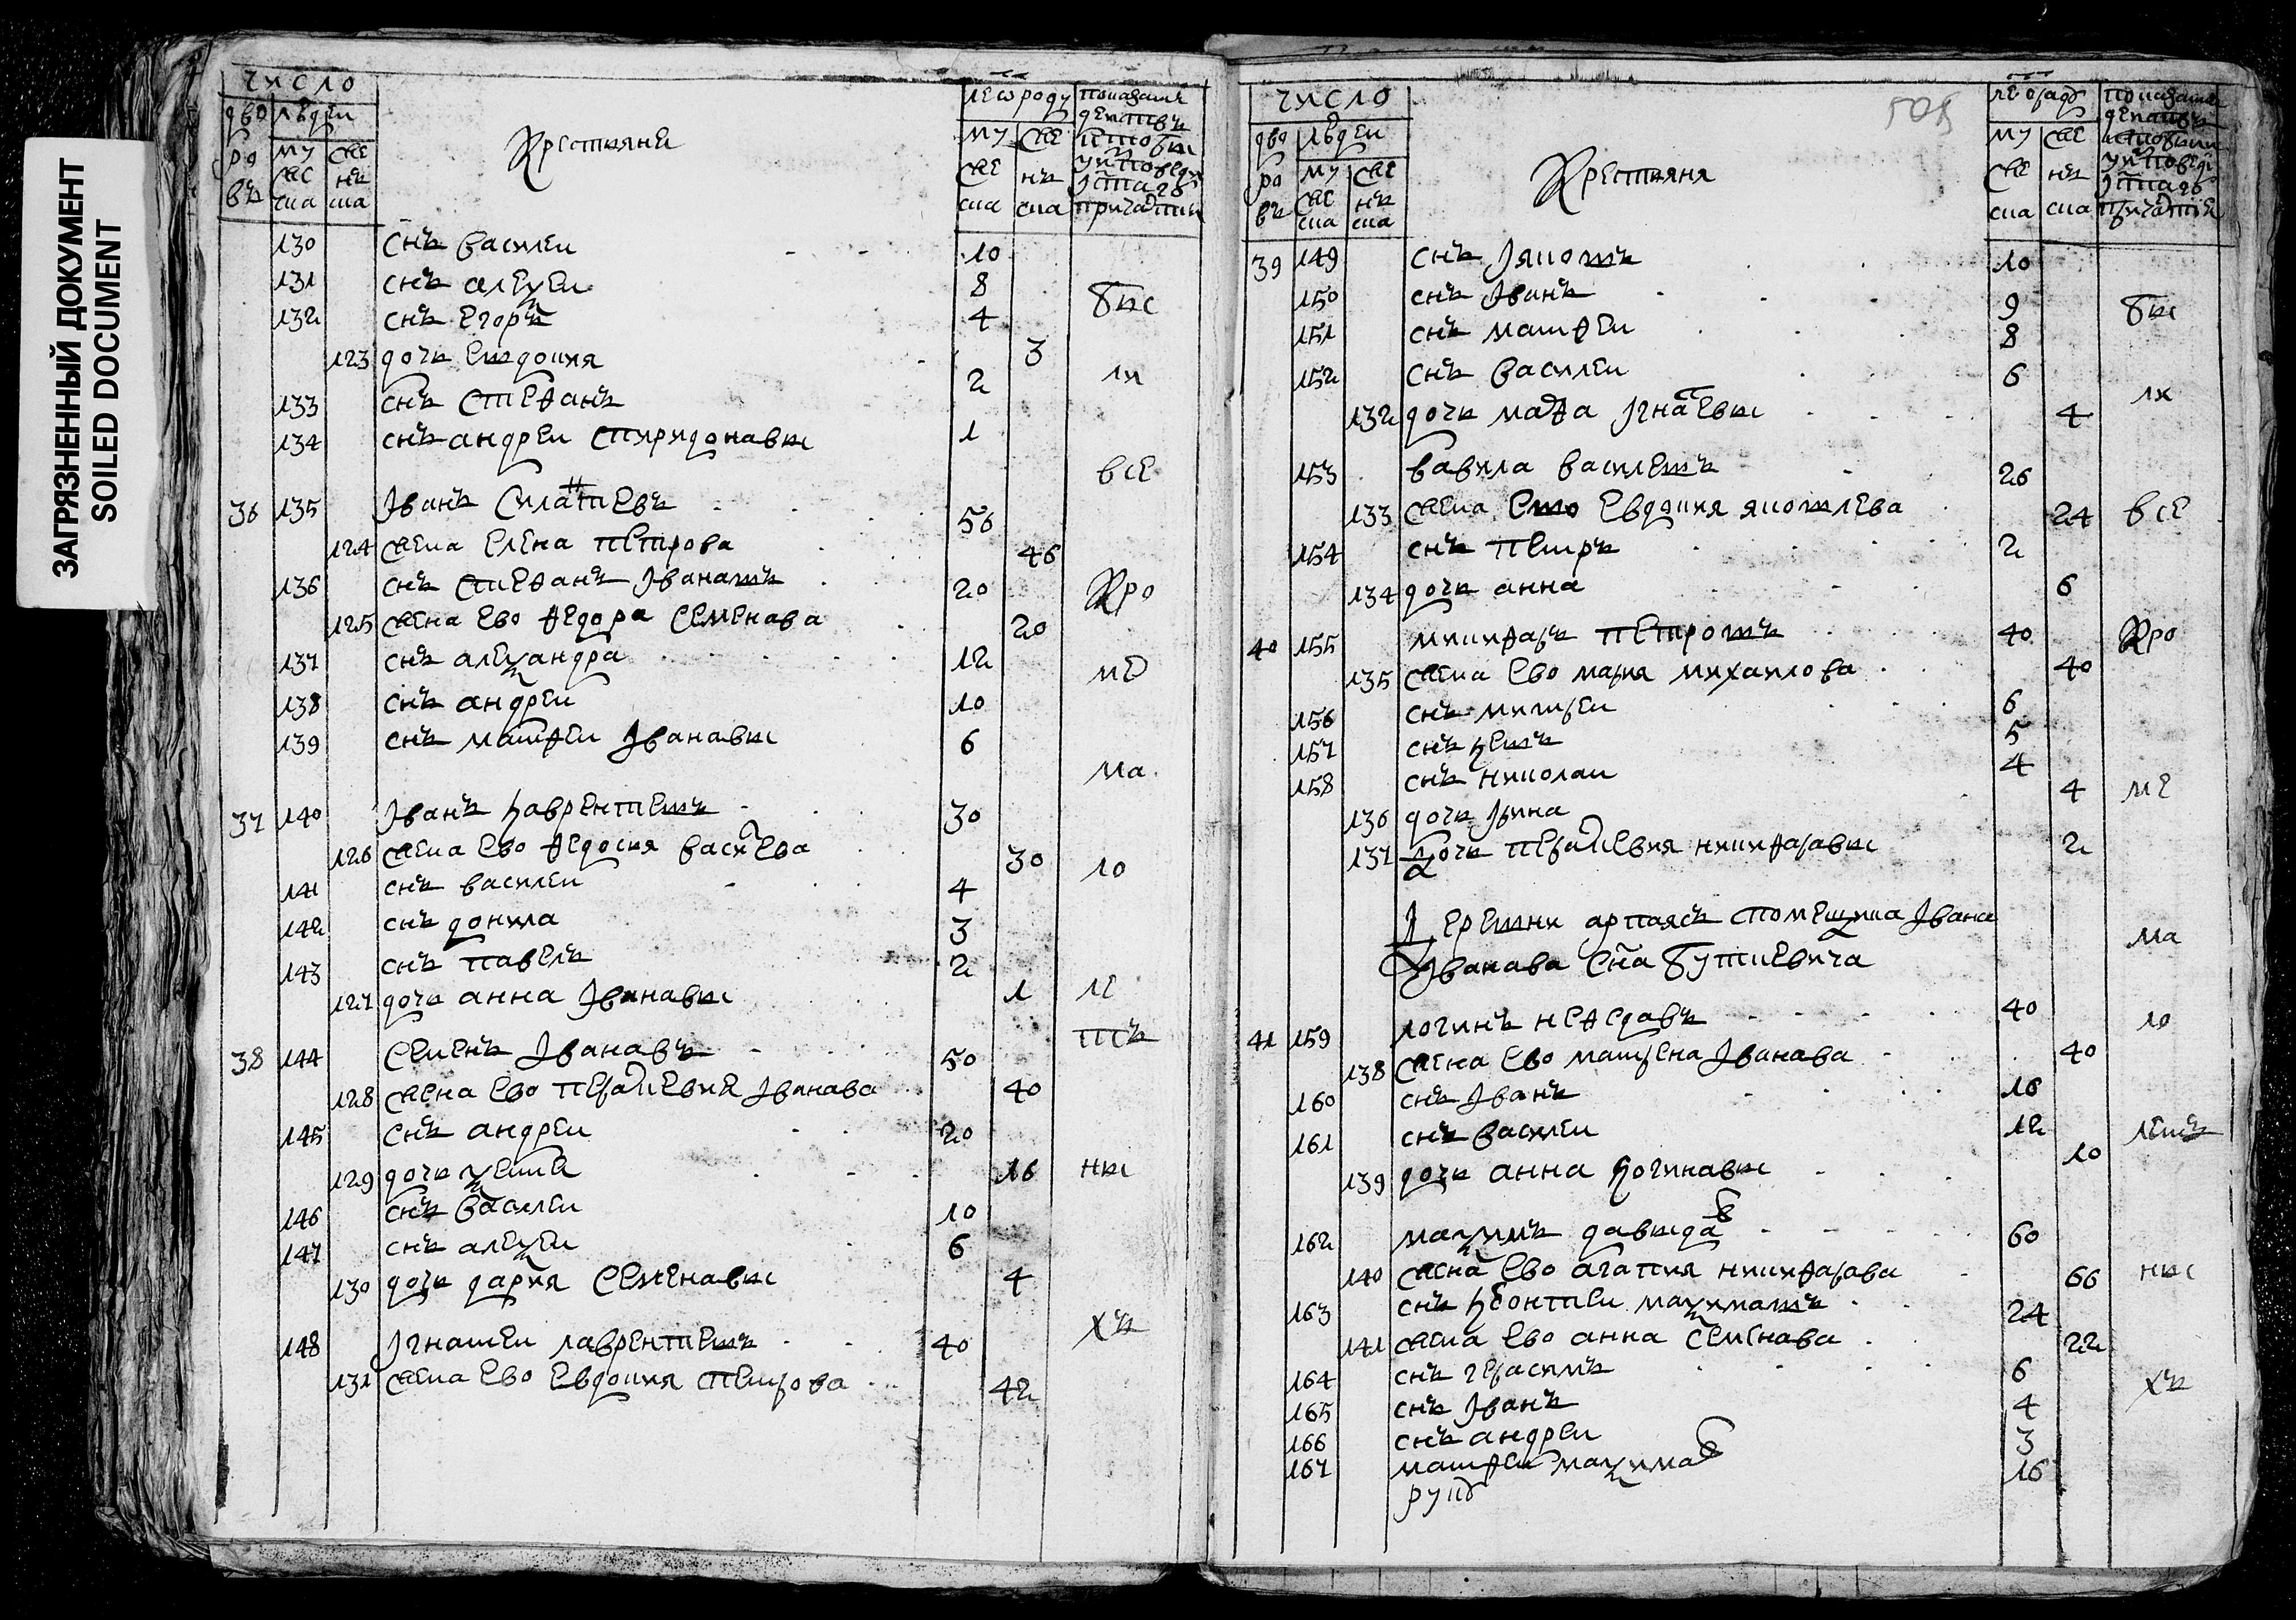 ЗАГРЯЗНЕННЫЙ ДОКУМЕНТ
SOILED DOCUMENT
число
дво людеи
ро му же
въ же нъ
ска ска
Крестьяне
лето роду
му же
же нъ
ска ска
130 снъ василеи 10
131 снъ алеѯеи 8
132 снъ егоръ 4
бы
123 дочь евдокия 3
133 снъ стеѳанъ 2
ли
134 снъ андреи спиридонавы 1
все
36 135 Іванъ 56
124 жена елена петрова 46
136 снъ стеѳанъ Іванавъ 20
Кро
125 жена ево ѳедора семенава 20
137 снъ алеѯандра 12
ме
138 снъ андреи 10
139 снъ матѳеи Іванавы 6
ма
37 140 Іванъ лаврентиевъ 30
126 жена ево ѳедосия васиʌева 30
ло
141 снъ василеи 4
142 снъ донила 3
143 снъ павелъ 2
127 дочь анна Іванавы 1
ле
тъ
38 144 семенъ Іванавъ 50
128 жена ево Іванава 40
145 снъ андреи 20
129 дочь 16
ны
146 снъ василеи 10
147 снъ алеѯеи 6
130 дочь дария семенавы 4
хъ
148 Ігнатеи лаврентиевъ 40
131 жена ево евдокия петрова 42
505
число
дво людеи
ро му же
въ же нъ
ска ска
Крестьяня
му же
же нъ
ска ска
39 149 снъ Іяковъ 10
150 снъ Іванъ 9
бы
151 снъ матѳеи 8
152 снъ василеи 6
ли
132 дочь марѳа Ігнатевы 4
153 вавила василевъ 26
133 жена ево евдокия яковлева 24
все
154 снъ петръ 2
134 дочь анна 6
40 155 никиѳаръ петровъ 40
Кро
135 жена ево мария михаилова 40
156 снъ митреи 6
157 снъ левъ 5
158 снъ николаи 4
ме
136 дочь Ірина 4
137 дочь никиѳаравы 2
помещика Івана
Іванава сна буткевича
ма
41 159 логинъ неѳедавъ 40
ло
138 жена ево матрена Іванава 40
160 снъ Іванъ 16
161 снъ василеи 12
139 дочь анна логинавы 10
162 маѯимъ давыдав 60
140 жена ево агапия никиѳарава 66
ны
163 снъ леонтиеи маѯимавъ 24
141 жена ево анна семенава 22
164 снъ герасимъ 6
хъ
165 снъ Іванъ 4
166 снъ андреи 3
167 матѳеи маѯимав 16